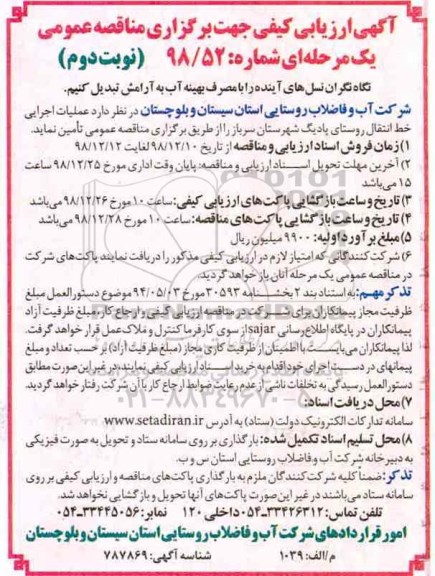 آگهی ارزیابی کیفی جهت برگزاری مناقصه عمومی
یک مرحله‌ای شماره: ۹۸/۵۲ (نوبت دوم)
نگاه نگران نسل‌های آینده را با مصرف بهینه آب به آرامش تبدیل کنیم.
شرکت آب و فاضلاب روستایی استان سیستان و بلوچستان در نظر دارد عملیات اجرایی
خط انتقال روستای پادیگ شهرستان سرباز را از طریق برگزاری مناقصه عمومی تأمین نماید.
۱) زمان فروش اسناد ارزیابی و مناقصه از تاریخ ۹۸/۱۲/۱۰ لغایت ۹۸/۱۲/۱۲
۲) آخرین مهلت تحویل اسناد ارزیابی و مناقصه: پایان وقت اداری مورخ ۹۸/۱۲/۲۵ ساعت
۱۵ می‌باشد
۳) تاریخ و ساعت بازگشایی پاکت‌های ارزیابی کیفی: ساعت ۱۰ مورخ ۹۸/۱۲/۲۶ می‌باشد
۴) تاریخ و ساعت بازگشایی پاکت‌های مناقصه: ساعت ۱۰ مورخ ۹۸/۱۲/۲۸ می‌باشد
۵) مبلغ برآورد اولیه: ۹۹۰۰ میلیون ریال
۶) شرکت کنندگانی که امتیاز لازم در ارزیابی کیفی مذکور را دریافت نمایند پاکت‌های شرکت
در مناقصه عمومی یک مرحله آنان باز خواهد گردید.
تذکر مهم: به استناد بند ۲ بخشنامه ۳۰۵۹۳ مورخ ۹۴/۰۵/۰۳ موضوع دستورالعمل مبلغ
ظرفیت مجاز پیمانکاران برای شرکت در مناقصه ارزیابی کیفی و ارجاع کار، مبلغ ظرفیت آزاد
پیمانکاران در پایگاه اطلاع رسانی sajar از سوی کارفرما کنترل و ملاک عمل قرار خواهد گرفت.
لذا پیمانکاران می‌بایست با اطمینان از ظرفیت کاری مجاز (مبلغ ظرفیت آزاد) بر حسب تعداد و مبلغ
پیمانهای در دست اجرای خود اقدام به خرید اسناد ارزیابی کیفی نمایند، در غیر این صورت مطابق
دستورالعمل رسیدگی به تخلفات ناشی از عدم رعایت ضوابط ارجاع کار با آن شرکت رفتار خواهد گردید.
۷) محل دریافت اسناد:
سامانه تدارکات الکترونیک دولت (ستاد) به آدرس www.setadiran.ir
۸) محل تسلیم اسناد تکمیل شده: بارگذاری بر روی سامانه ستاد و تحویل به صورت فیزیکی
به دبیرخانه شرکت آب و فاضلاب روستایی استان س و ب.
تذکر: ضمناً کلیه شرکت کنندگان ملزم به بارگذاری پاکت‌های مناقصه و ارزیابی کیفی بر روی
سامانه ستاد می‌باشند در غیر این صورت پاکت‌های آنها تحویل و بازگشایی نخواهد شد.
تلفن تماس: ۳۳۴۲۶۳۱۲-۰۵۴ داخلی ۱۲۰ نمابر: ۳۳۴۴۵۰۵۶-۰۵۴
امور قراردادهای شرکت آب و فاضلاب روستایی استان سیستان و بلوچستان
م/الف: ۱۰۳۹ شناسه آگهی: ۷۸۷۸۶۹